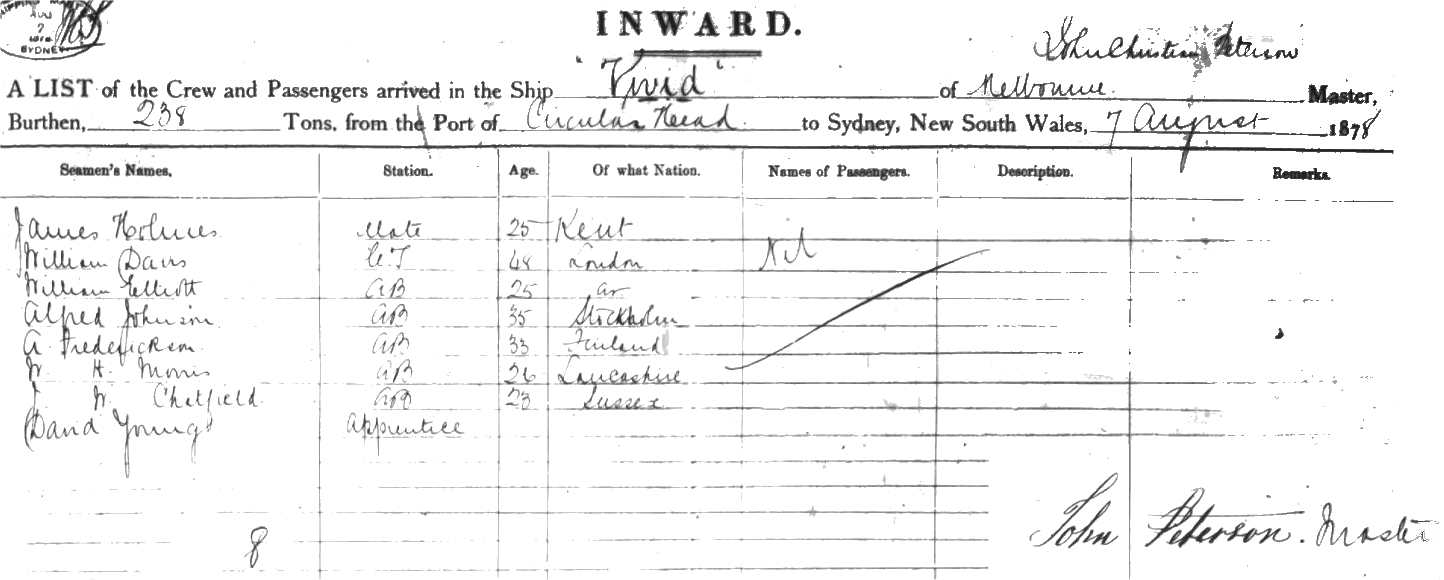 AUG
7
SYDNEY
INWARD.
John Christian Peterson
A LIST of the Crew and Passengers arrived in the Ship "Vivid" of Melbourne Master,
Burthen, 238 Tons, from the Port of Circular Head to Sydney, New South Wales, 7 August 1878
Seamen's Names, Station. Age. Of what Nation. Names of Passengers. Description. Remarks.
James Holmes Mate 25 Kent
William Davis 48 London Nil
William Elliott AB 25
Alfred Johnson AB 35 Stockholm
A Frederickson AB 33 Finland
W H. Morris AB 26 Lancashire
J W. Chatfield AB 23 Sussex
David Young Apprentice
8
John Peterson. Master